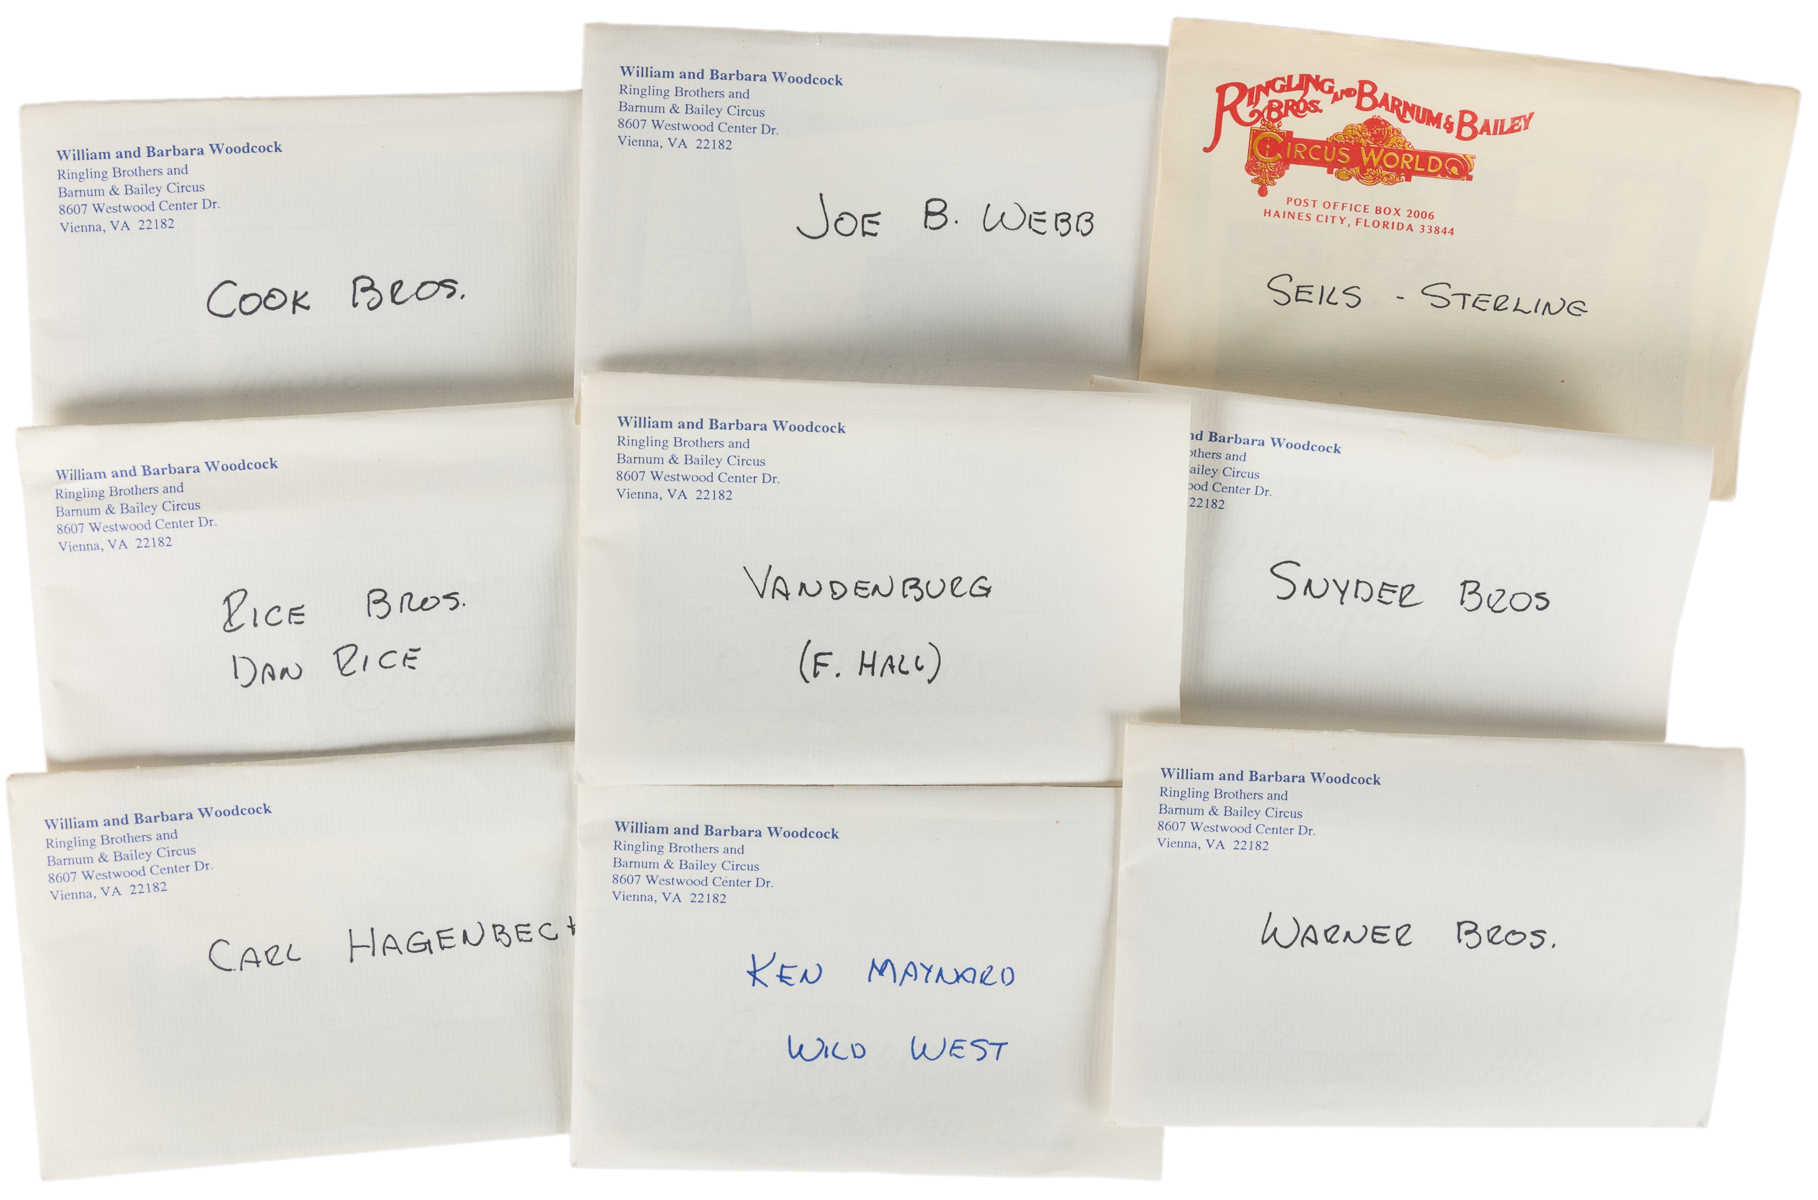 William and Barbara Woodcock
Ringling Brothers and
Barnum & Bailey Circus
8607 Westwood Center Dr.
Vienna, VA 22182
COOK BROS.
William and Barbara Woodcock
Ringling Brothers and
Barnum & Bailey Circus
8607 Westwood Center Dr.
Vienna, VA 22182
JOE B. WEBB
RINGLING BROS. AND BARNUM & BAILEY
CIRCUS WORLD
POST OFFICE BOX 2006
HAINES CITY, FLORIDA 33844
SEILS - STERLING
William and Barbara Woodcock
Ringling Brothers and
Barnum & Bailey Circus
8607 Westwood Center Dr.
Vienna, VA 22182
RICE BROS.
DAN RICE
William and Barbara Woodcock
Ringling Brothers and
Barnum & Bailey Circus
8607 Westwood Center Dr.
Vienna, VA 22182
VANDENBURG
(F. HALL)
nd Barbara Woodcock
thers and
ailey Circus
ood Center Dr.
22182
SNYDER BROS
William and Barbara Woodcock
Ringling Brothers and
Barnum & Bailey Circus
8607 Westwood Center Dr.
Vienna, VA 22182
CARL HAGENBECK
William and Barbara Woodcock
Ringling Brothers and
Barnum & Bailey Circus
8607 Westwood Center Dr.
Vienna, VA 22182
KEN MAYNARD
WILD WEST
William and Barbara Woodcock
Ringling Brothers and
Barnum & Bailey Circus
8607 Westwood Center Dr.
Vienna, VA 22182
WARNER BROS.